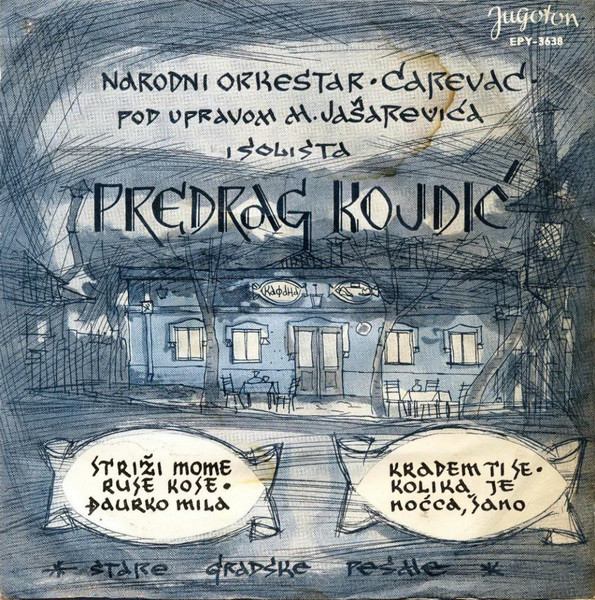 Jugoton
EPY-3638
NARODNI ORKESTAR · CAREVAC ·
POD UPRAVOM M. JAŠAREVIĆA
I SOLISTA
PREDRAG KOJDIĆ
КАФАНА
STRIŽI MOME
RUSE KOSE ·
ĐAURKO MILA
KRADEM TI SE ·
KOLIKA JE
NOĆCA, ŠANO
* STARE GRADSKE PESME *